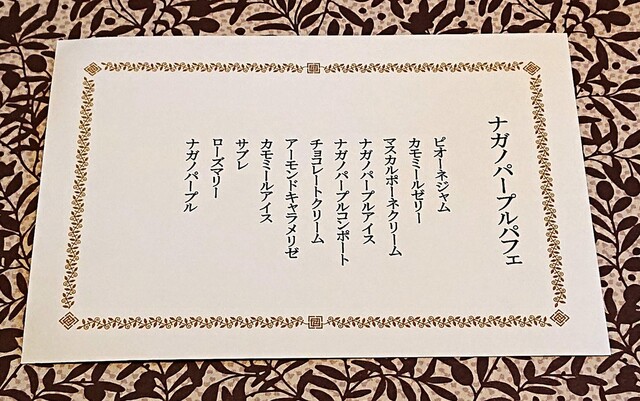 ナガノパープルパフェ
ピオーネジャム
カモミールゼリー
マスカルポーネクリーム
ナガノパープルアイス
ナガノパープルコンポート
チョコレートクリーム
アーモンドキャラメリゼ
カモミールアイス
サブレ
ローズマリー
ナガノパープル